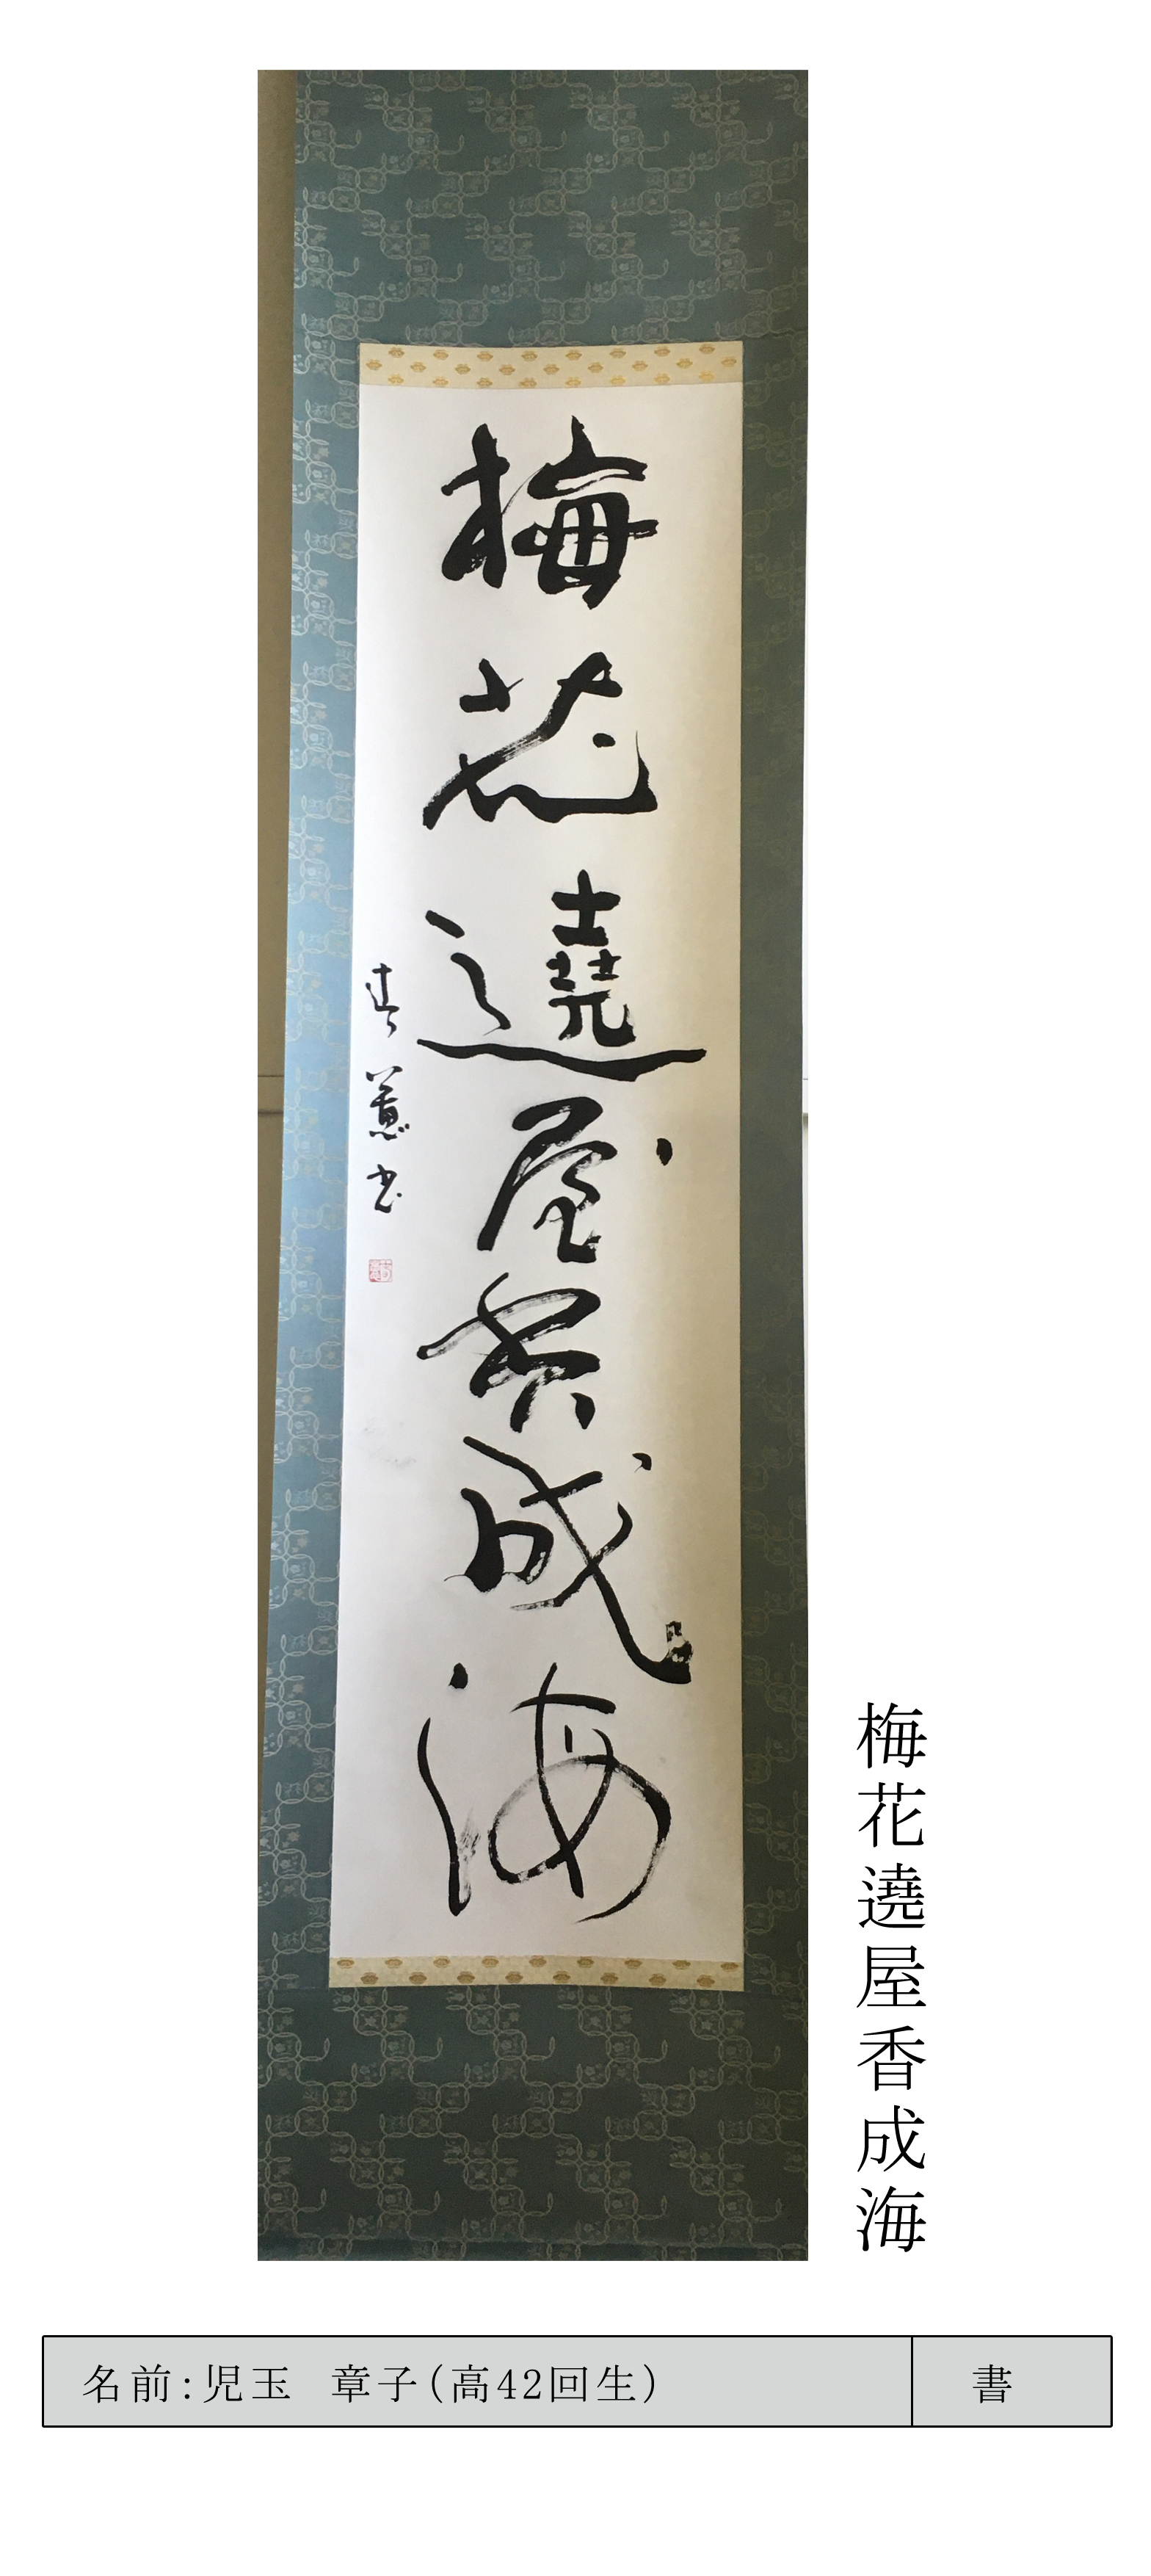 梅花遶屋香成海
春蕙書
梅花遶屋香成海
名前:児玉 章子(高42回生)
書